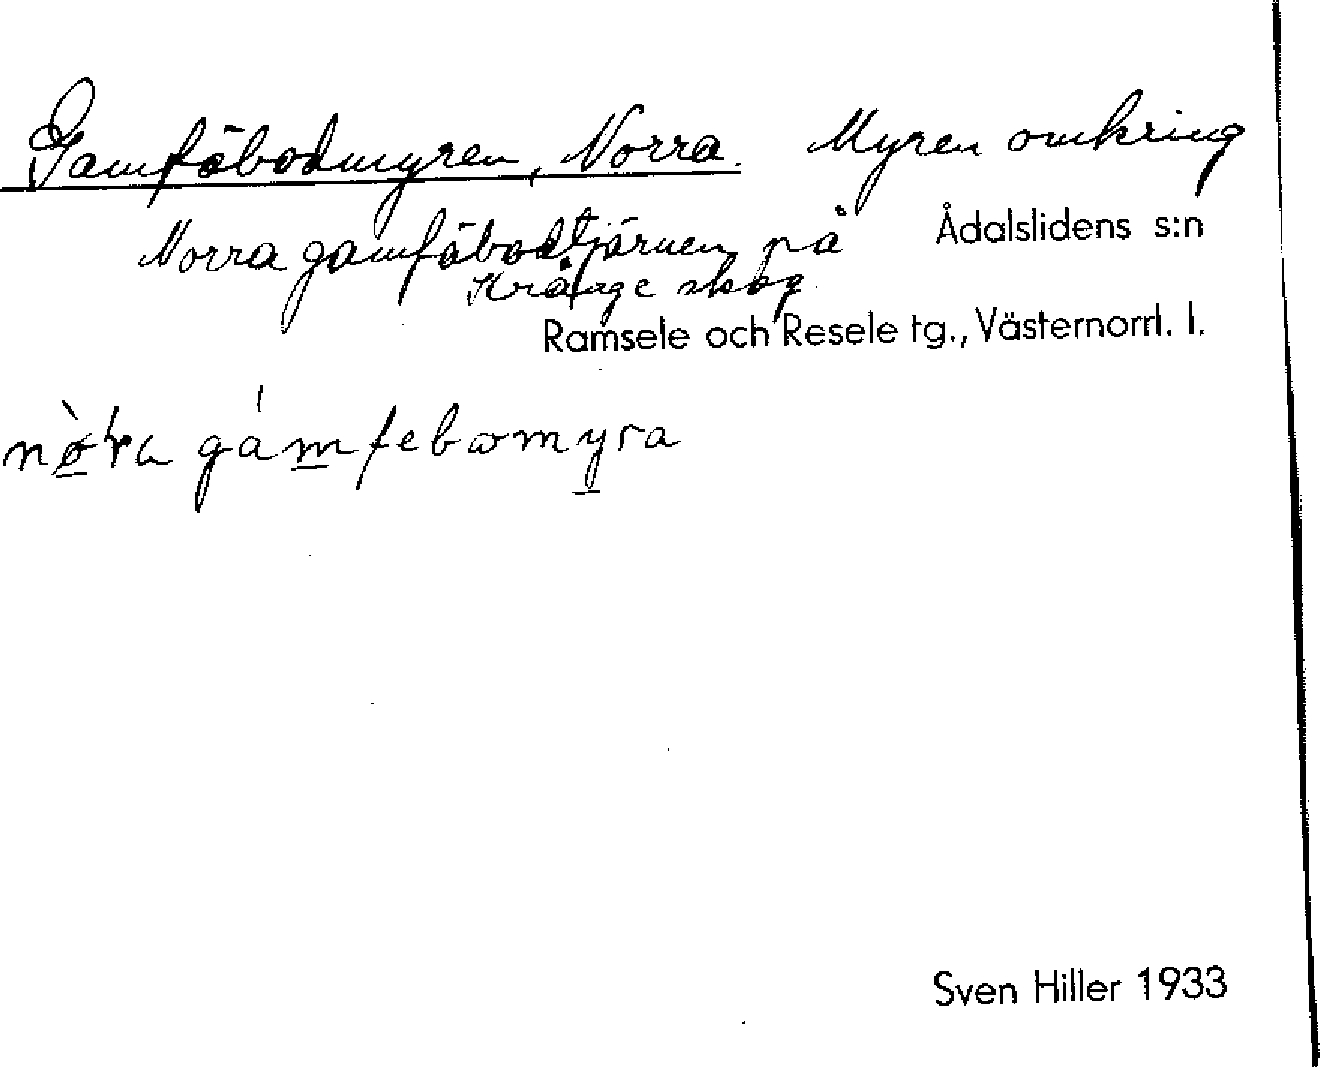 Gamfäbodmyren, Norra. Myren omkring
Norra gamfäbodtjärnen på
Krånge skog.
Ådalslidens s:n
Ramsele och Resele tg., Västernorrl. l.
gámfebomyra
Sven Hiller 1933